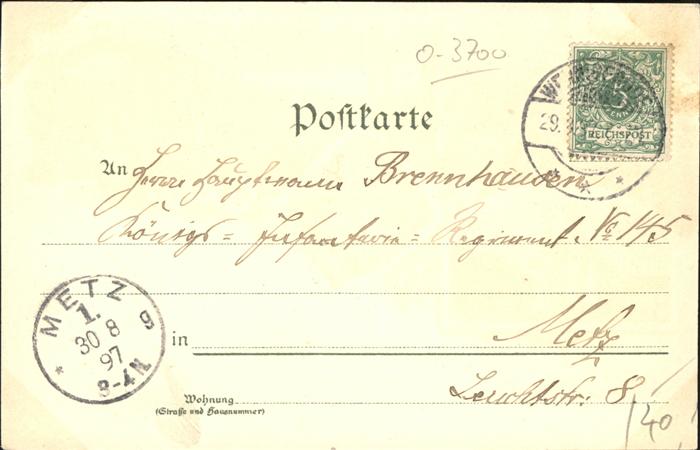 0-3700
5
REICHSPOST
29.
Postkarte
An Herrn Hauptmann Brennhausen
Königs-Infanterie-Regiment No 145
METZ
1.
30 8
97
3-4N
g
in Metz
Wohnung
(Straße und Hausnummer)
Leuchtstr. 8
/40